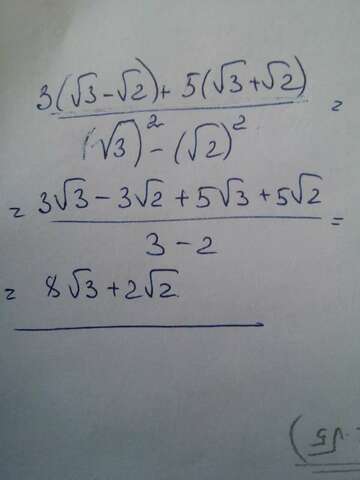 3(√3-√2)+ 5(√3+√2) =
(√3)² - (√2)²
= 3√3 - 3√2 + 5√3 + 5√2 =
3 - 2
= 8√3 + 2√2
√5)